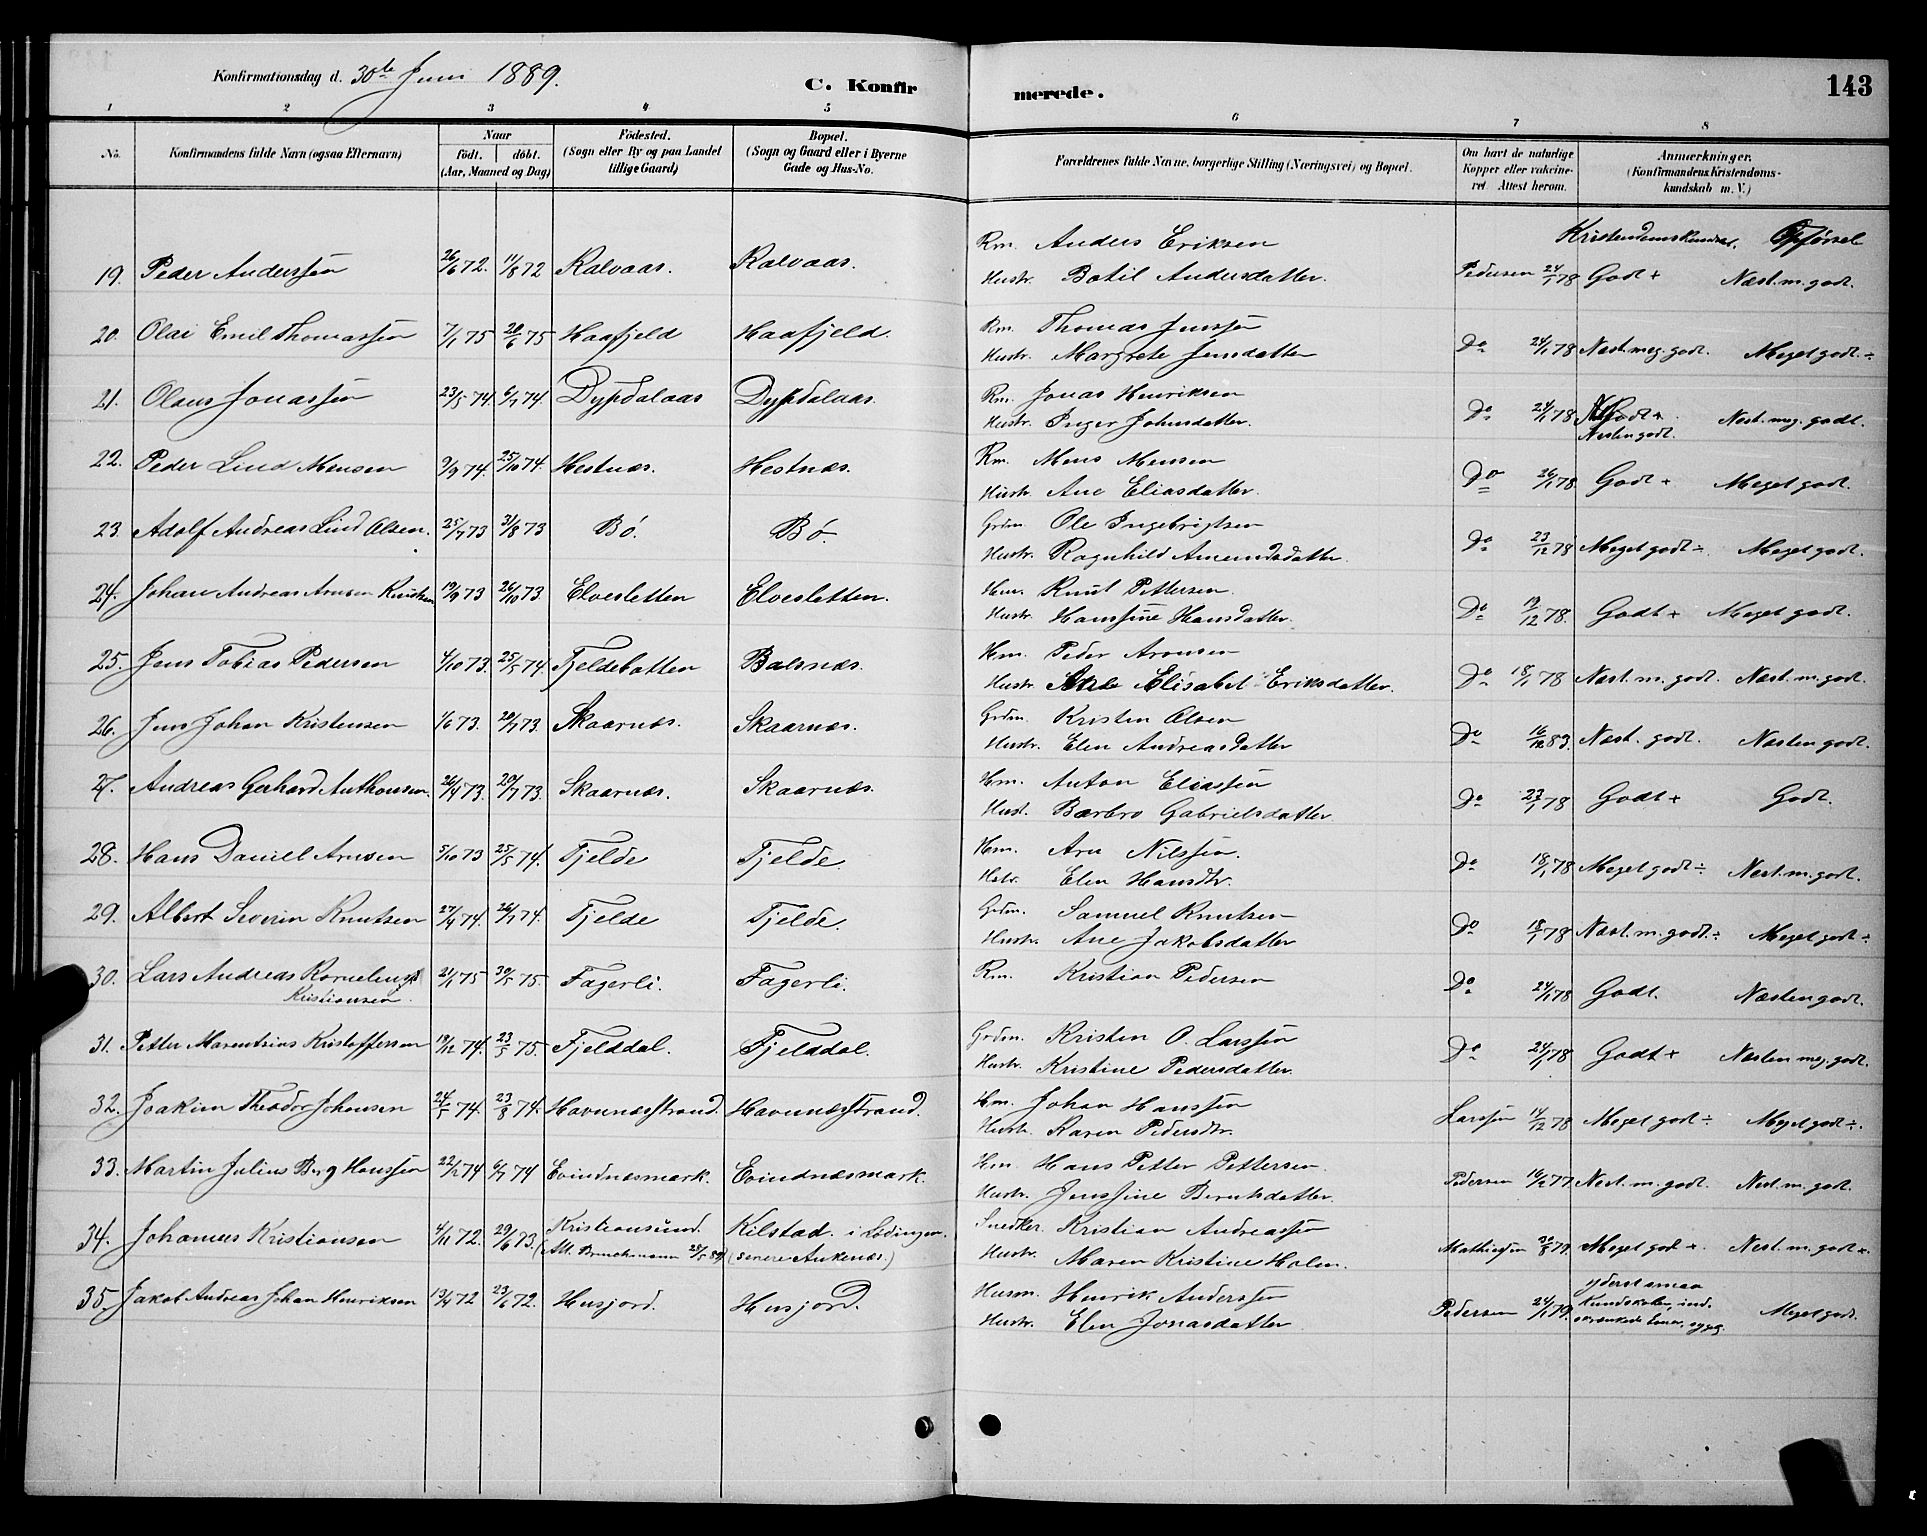 Konfirmationsdag d. 30te Juni 1889.
C. Konfirmerede.
143
1 2 3 4 5 6 7 8
No. Konfirmandens fulde Navn (ogsaa Efternavn) Naar födt. döbt. (Aar, Maaned og Dag) Födested. (Sogn eller By og paa Landet tillige Gaard) Bopæl. (Sogn og Gaard eller i Byerne Gade og Hus-No. Forældrenes fulde Navne, borgerlige Stilling (Næringsvei) og Bopæl. Om havt de naturlige Kopper eller vakcineret Attest herom. Anmærkninger. (Konfirmandens Kristendomskundskab m. V.)
Opførsel
19. Peder Anderssen 26/6 72. 11/8 72 Kalvaas. Kalvaas. Rm. Anders Eriksen
Hustr. Botil Andersdatter. Pedersen 24/1 78 Godt + Næst. m. godt.
20. Olai Emil Thomassen 7/1 75 20/6 75 Haafjeld Haafjeld. Rm. Thomas Jenssen
Hustr. Margrete Jensdatter Do 24/1 78 Næst. meg. godt. Meget godt. ÷
21. Olaus Jonassen 23/5 74. 6/7 74. Dypdalaas Dypdalaas. Rm. Jonas Henriksen
Hustr. Inger Johnsdatter. Do 24/1 78 Næsten godt. Næst. meg. godt.
22. Peder Lind Monsen 9/9 74. 25/10 74. Hestnæs. Hestnæs. Rm. Mons Monsen
Hustr. Ane Eliasdatter. Do 26/1 78 Godt + Meget godt.
23. Adolf Andreas Lind Olsen. 25/7 73 31/8 73 Bö. Bö. Grdm. Ole Ingebrigtsen
Hustr. Ragnhild Amundsdatter. Do 23/12 78 Meget godt ÷ Meget godt.
24. Johan Andreas Arnsen Knutsen 19/9 73 26/10 73. Elvesletten Elvesletten. Hm. Knut Pettersen.
Hustr. Hanssine Hansdatter. Do 19/12 78. Godt + Meget godt.
25. Jens Tobias Pedersen 4/10 73. 25/5 74. Tjeldebotten Balsnæs. Hm. Peder Aronsen
Hustr. Ane Elisabet Eriksdatter. Do 18/1 78 Næst. m. godt. Næst. m. godt.
26. Jens Johan Kristensen 1/6 73. 20/7 73. Skaarnæs. Skaarnæs. Grdm. Kristen Olsen
Hustr. Elen Andreasdatter Do 16/12 83. Næst. godt. Næsten godt.
27. Andreas Gerhard Anthonsen. 26/4 73. 20/7 73. Skaarnæs. Skaarnæs. Hm. Anton Eliassen
Hust. Barbro Gabrielsdatter Do 23/1 78 Godt + Godt.
28. Hans Daniel Arnsen 5/10 73 25/5 74. Tjelde Tjelde. Hm. Arn Nilssen.
Hstr. Elen Hansdtr. Do 18/1 78 Meget godt ÷ Næst. m. godt.
29. Albert Severin Knutsen 27/4 74. 26/7 74. Tjelde Tjelde. Grdm. Samuel Knutsen
Hustr. Ane Jakobsdatter Do 18/1 78 Næst. m. godt. ÷ Meget godt ÷
30. Lars Andreas Kornelius Kristiansen 21/1 75 30/5 75. Fagerli. Fagerli. Rm. Kristian Pedersen
Do 24/1 78 Godt. Næsten godt.
31. Petter Marentzius Kristoffersen 19/12 74. 23/5 75. Fjelddal. Fjelddal. Grdm. Kristen O. Larssen
Hustr. Kristine Pedersdatter Do 24/1 78 Godt + Næsten meg. godt.
32. Joakim Theodor Johansen 24/5 74. 23/8 74. Havnnæsstrand. Havnnæsstrand. Hm. Johan Hanssen
Hustr. Karen Pedersdtr. Larssen 14/12 78 Meget godt ÷ Meget godt ÷.
33. Martin Julius Berg Hanssen 22/2 74 6/7 74 Evindnæsmark. Evindnæsmark. Hm. Hans Petter Pettersen.
Hustr. Jenssine Berntsdatter. Pedersen 16/2 77 Næst. m. godt. Næst. m. godt.
34. Johannes Kristiansen 4/11 72. 29/6 73. Kristiansund. Kilstad i Lödingen. Snedker. Kristian Andreassen
(Att. 28/5 89) (senere Ankenæs.) Hustr. Maren Kristine Holm. Mathiesen 30/8 79. Meget godt +. Næst. m. godt +.
35. Jakob Andreas Johan Henriksen 13/4 72 23/6 72. Husjord. Husjord. Husm. Henrik Anderssen
Hustr. Elen Jonasdatter Pedersen 24/1 79. yderst smaa Kundskaber, indskrænkede Evner, sygelig. Meget godt.